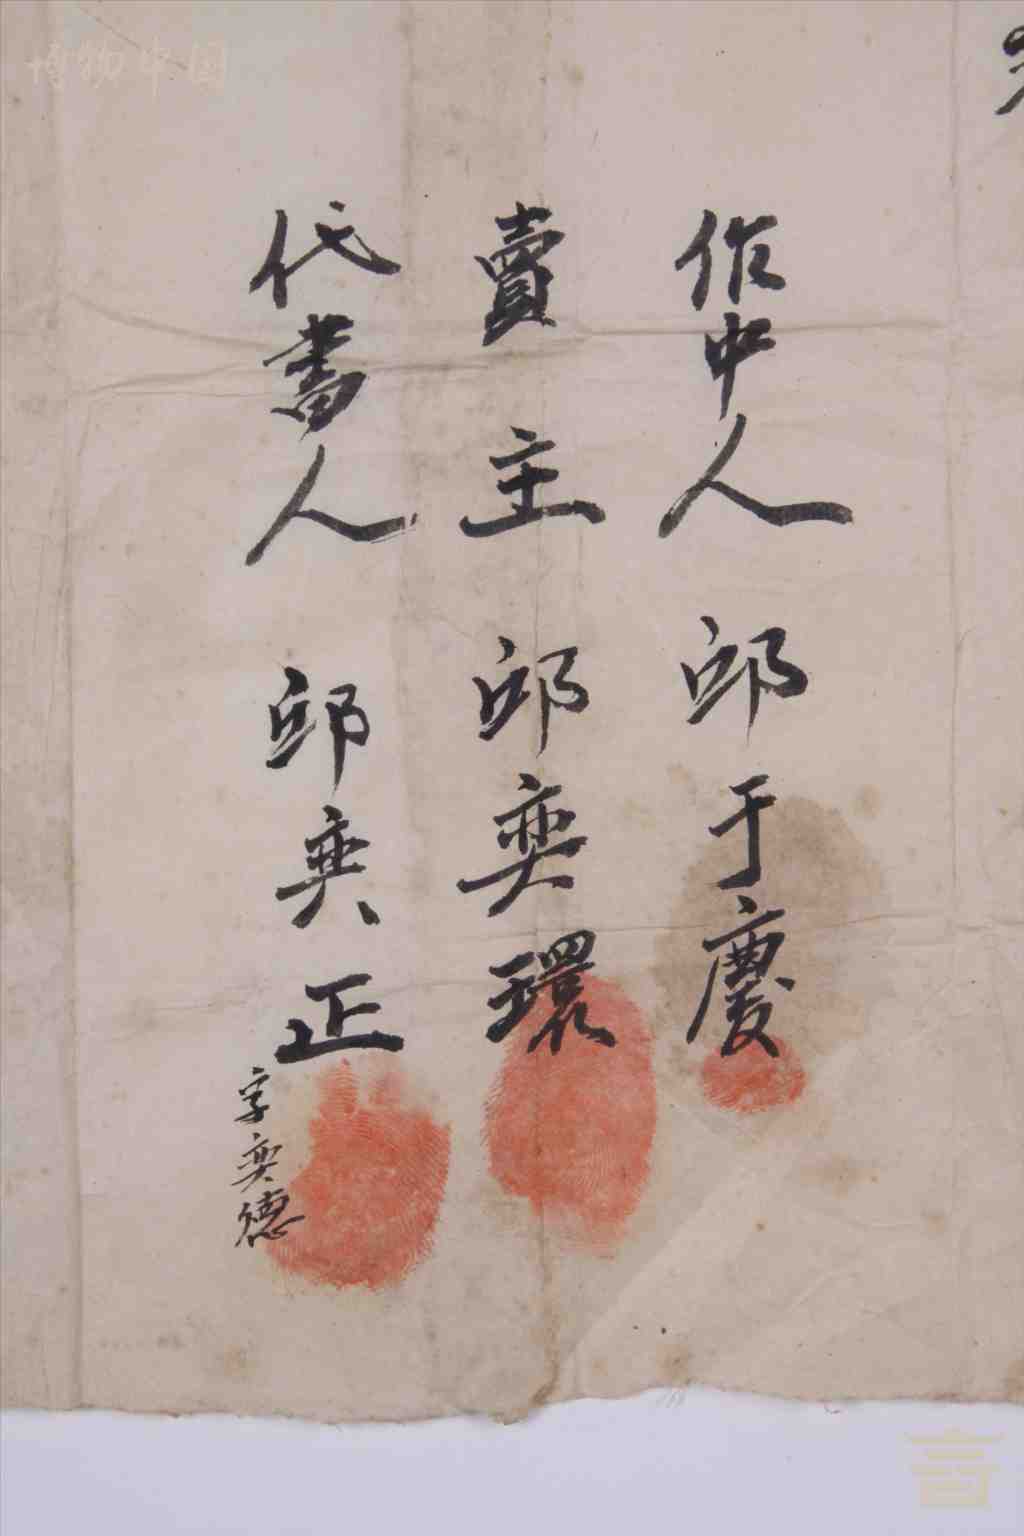 作中人 邱于慶
賣主 邱奕環
代書人 邱奕正
字奕德
博物中国